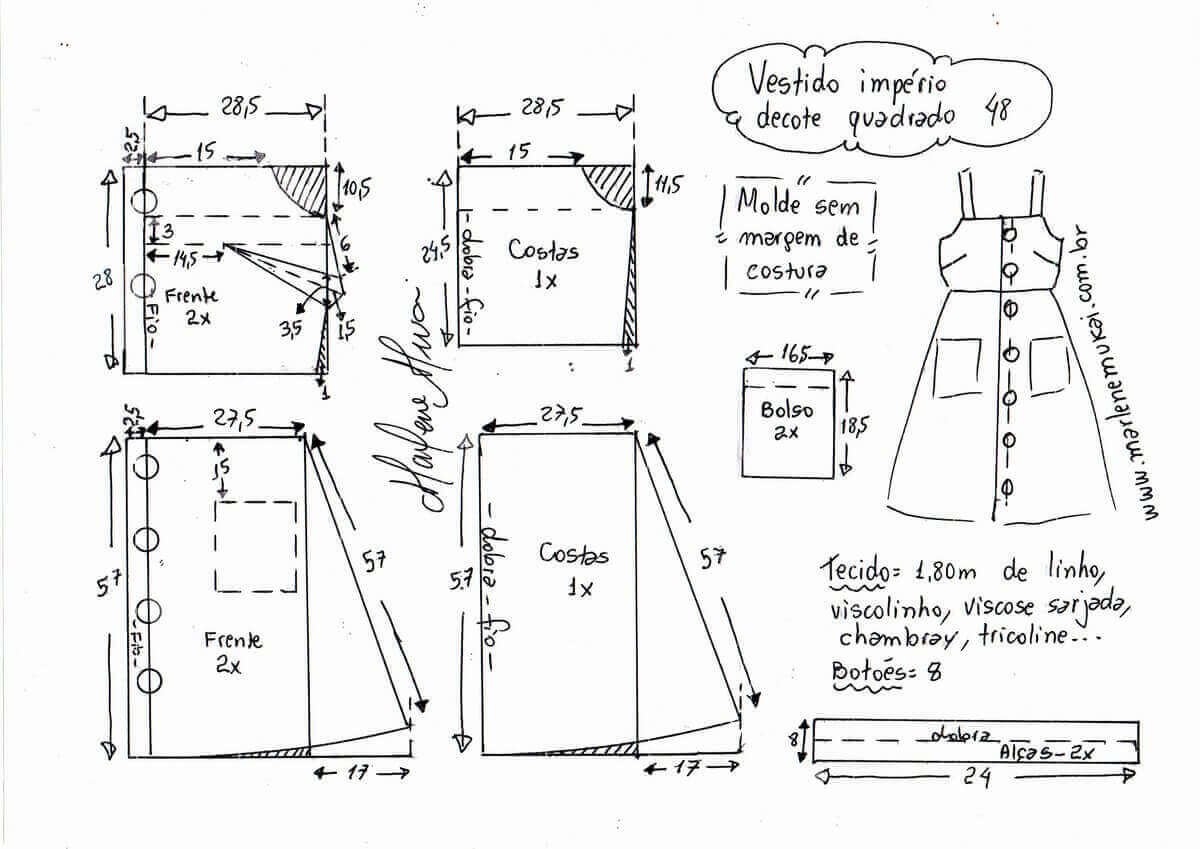 Vestido império
decote quadrado 48
Molde sem
margem de
costura
28,5
2,5
15
10,5
3
6
14,5
28
Frente
2x
-Fio-
3,5
1,5
1
28,5
15
11,5
24,5
-dobra-fio-
Costas
1x
1
Marlene Mukai
www.marlenemukai.com.br
16,5
Bolso
2x
18,5
2,5
27,5
15
57
57
-Fio-
Frente
2x
17
27,5
57
-dobra-fio-
Costas
1x
57
17
Tecido= 1,80m de linho,
viscolinho, viscose sarjada,
chambray, tricoline...
Botões= 8
8
dobra
Alças-2x
24